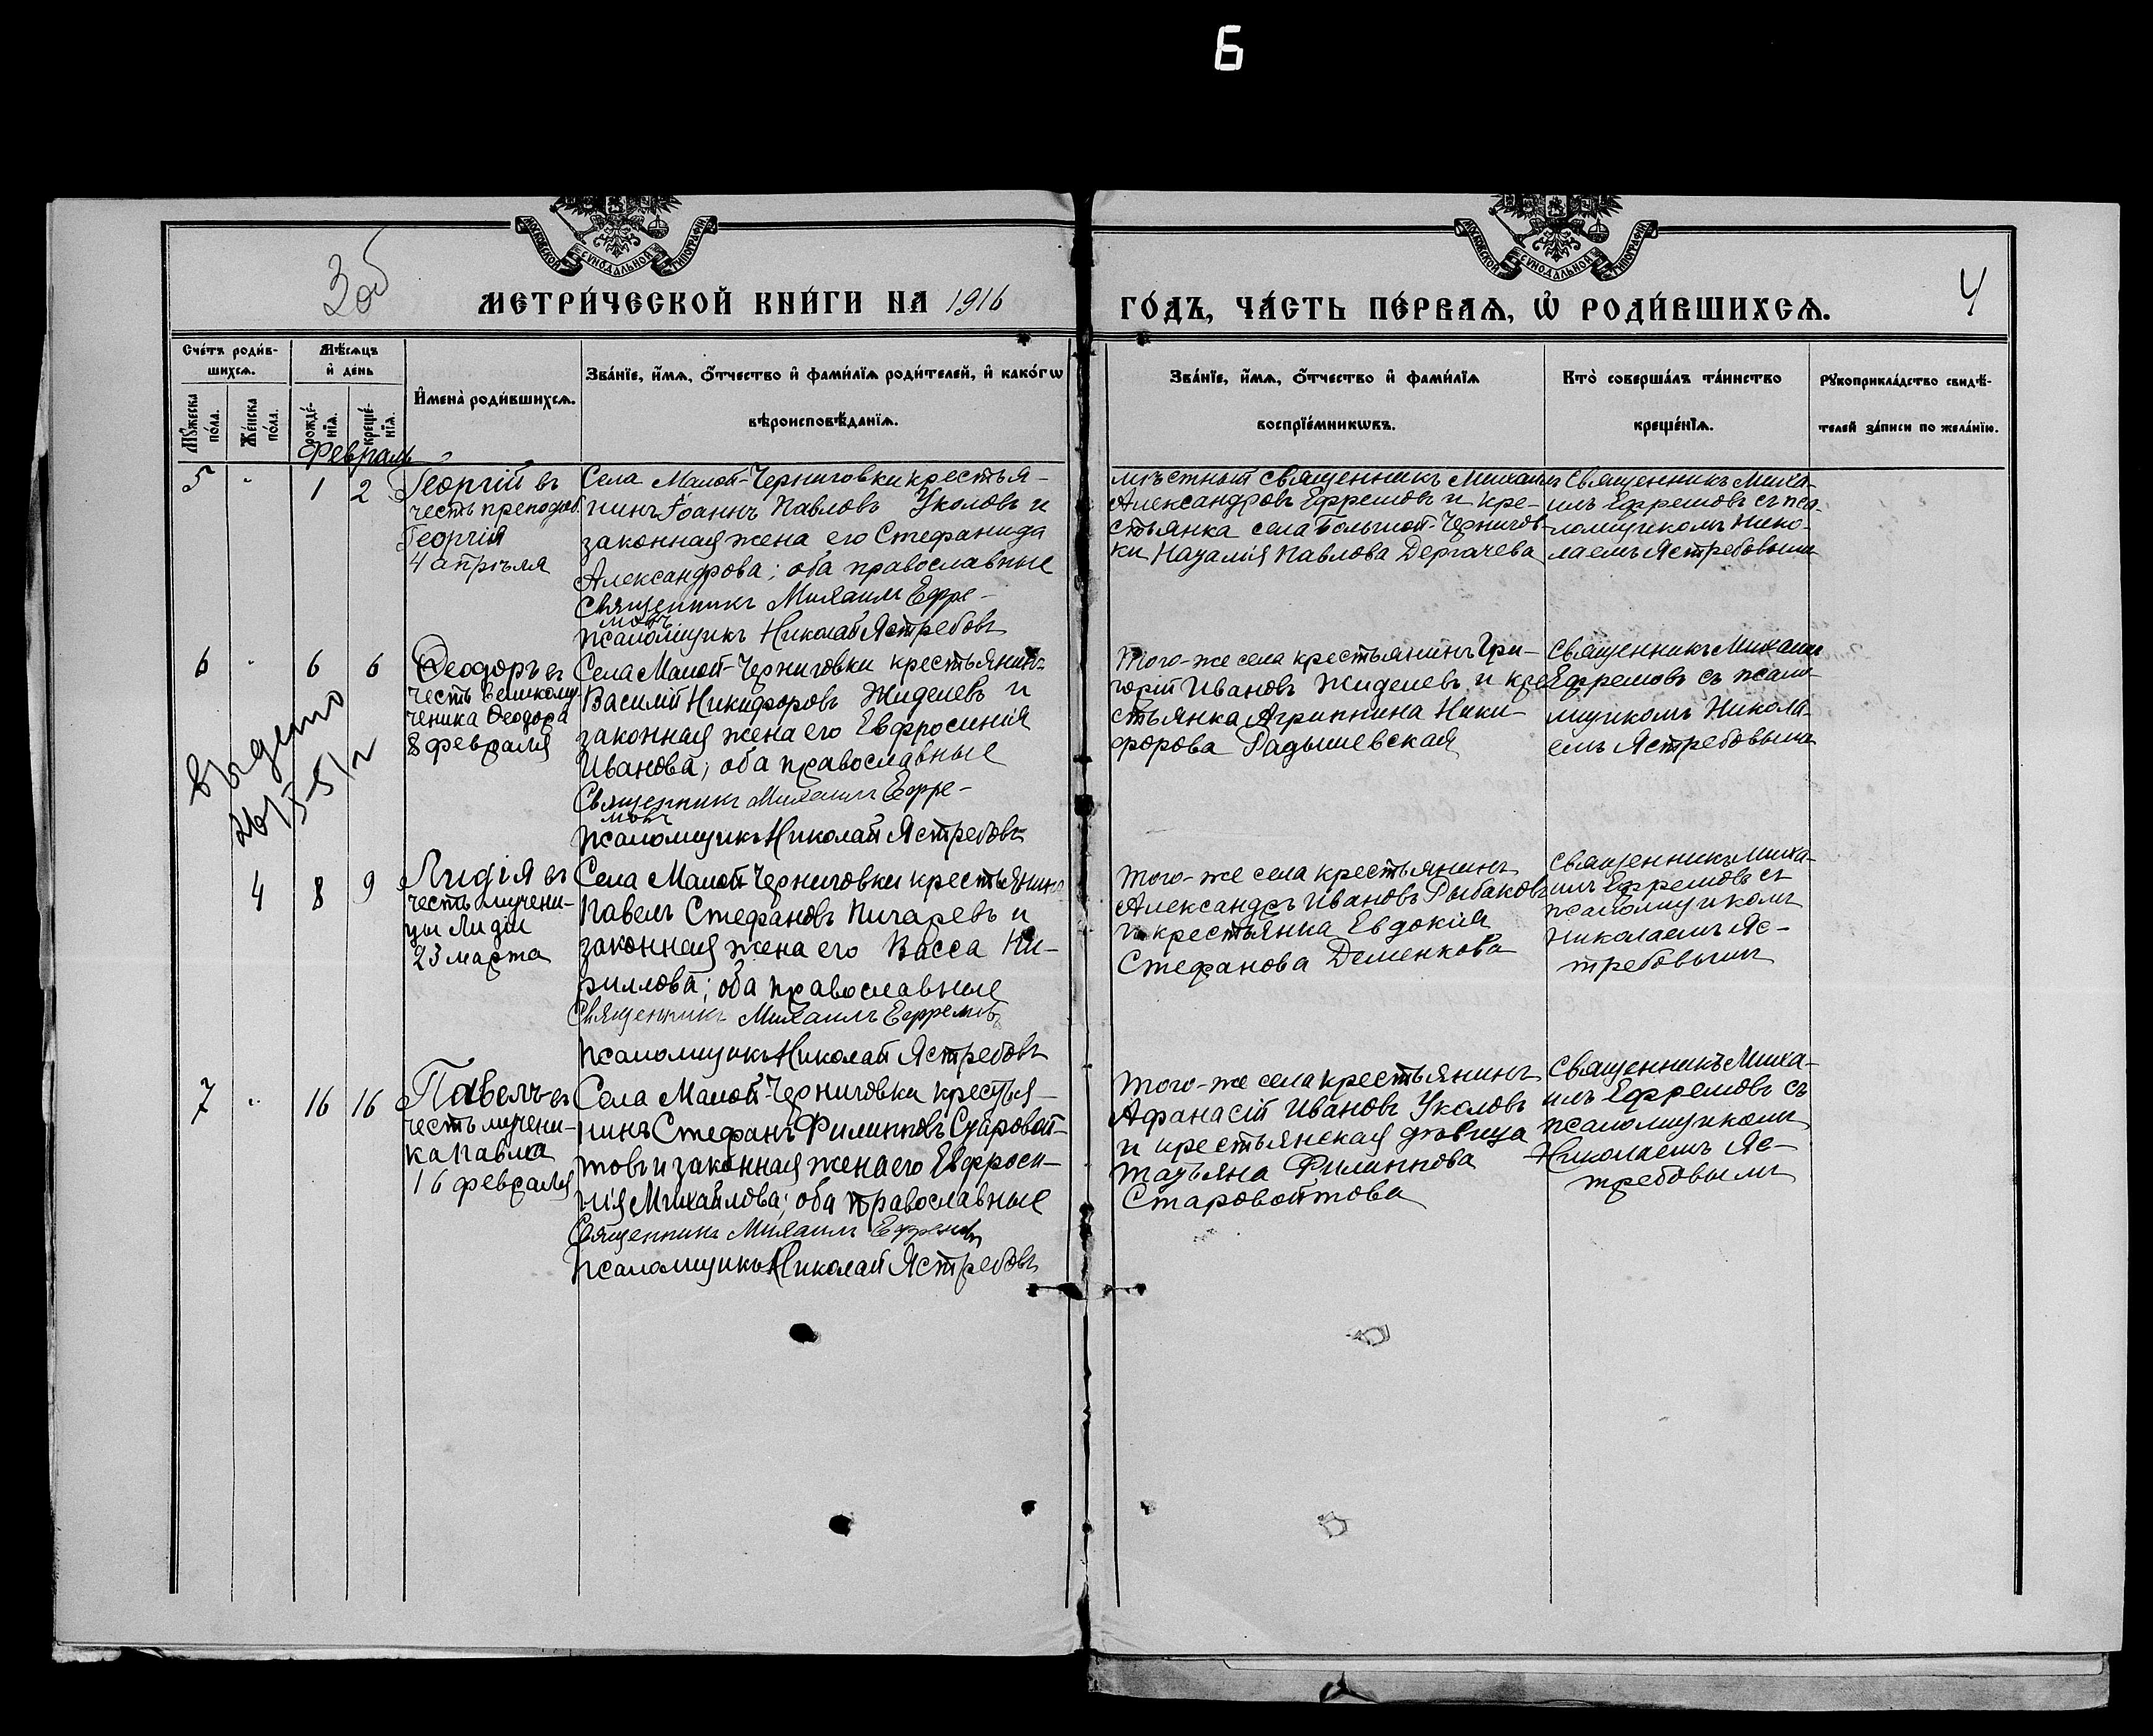 Б
МОСКОВСКОЙ СѴНОДАЛЬНОЙ ТИПОГРАФІИ
МОСКОВСКОЙ СѴНОДАЛЬНОЙ ТИПОГРАФІИ
3об
МЕТРИ́ЧЕСКОЙ КНИ́ГИ НА 1916
ГО́ДЪ, ЧА́СТЬ ПЕ́РВАѦ, Ѡ҆ РОДИ́ВШИХСѦ.
4
Сче́тъ роди́в-
шихсѧ.
Мѣ́сѧцъ
и҆ де́нь
Мꙋ́жеска
по́ла.
Же́нска
по́ла.
рожде́-
нїѧ.
креще́-
нїѧ.
И҆мена̀ роди́вшихсѧ.
Зва́нїе, и҆́мѧ, ѻ҆́тчество и҆ фами́лїѧ роди́телей, и҆ како́гѡ
вѣроисповѣ́данїѧ.
Зва́нїе, и҆́мѧ, ѻ҆́тчество и҆ фами́лїѧ
воспрїе́мникѡвъ.
Кто̀ соверша́лъ та́инство
креще́нїѧ.
Рꙋкоприкла́дство свидѣ́-
телей за́писи по жела́нїю.
Февраль
5 " 1 2
Георгій въ
честь преподоб.
Георгія
4 апрѣля
Села Малой-Черниговки крестья-
нинъ Іоаннъ Павловъ Уколовъ и
законная жена его Стефанида
Александрова; оба православные
Священникъ Михаилъ Ефре-
мовъ
Псаломщикъ Николай Ястребовъ
мѣстный священникъ Михаилъ
Александровъ Ефремовъ и кре-
стьянка села Большой-Чернигов-
ки Наталія Павлова Дергачева
Священникъ Миха-
илъ Ефремовъ съ пса-
ломщикомъ Нико-
лаемъ Ястребовымъ
6 " 6 6
Ѳеодоръ въ
честь великому-
ченика Ѳеодора
8 февраля
Села Малой-Черниговки крестьянинъ
Василій Никифоровъ Жиделевъ и
законная жена его Евфросинія
Иванова; оба православные
Священникъ Михаилъ Ефре-
мовъ
Псаломщикъ Николай Ястребовъ
Того-же села крестьянинъ Гри-
горій Ивановъ Жиделевъ и кре-
стьянка Агриппина Ники-
форова Радышевская
Священникъ Михаилъ
Ефремовъ съ псало-
мщикомъ Никола-
емъ Ястребовымъ
выдено
4 8 9
Лидія въ
честь мучени-
цы Лидіи
23 марта
Села Малой-Черниговки крестьянинъ
Павелъ Стефановъ Пичаревъ и
законная жена его Васса Ки-
риллова; оба православные
Священникъ Михаилъ Ефремовъ
Псаломщикъ Николай Ястребовъ
Того-же села крестьянинъ
Александръ Ивановъ Рыбаковъ
и крестьянка Евдокія
Стефанова Деменкова
Священникъ Миха-
илъ Ефремовъ съ
псаломщикомъ
Николаемъ Яс-
требовымъ
7 " 16 16
Павелъ въ
честь мучени-
ка Павла
16 февраля
Села Малой-Черниговки крестья-
нинъ Стефанъ Филипповъ Старовой-
товъ и законная жена его Евфроси-
нія Михайлова; оба православные
Священникъ Михаилъ Ефремовъ
Псаломщикъ Николай Ястребовъ
Того-же села крестьянинъ
Афанасій Ивановъ Уколовъ
и крестьянская дѣвица
Татьяна Филиппова
Старовойтова
Священникъ Миха-
илъ Ефремовъ съ
псаломщикомъ
Николаемъ Яс-
требовымъ